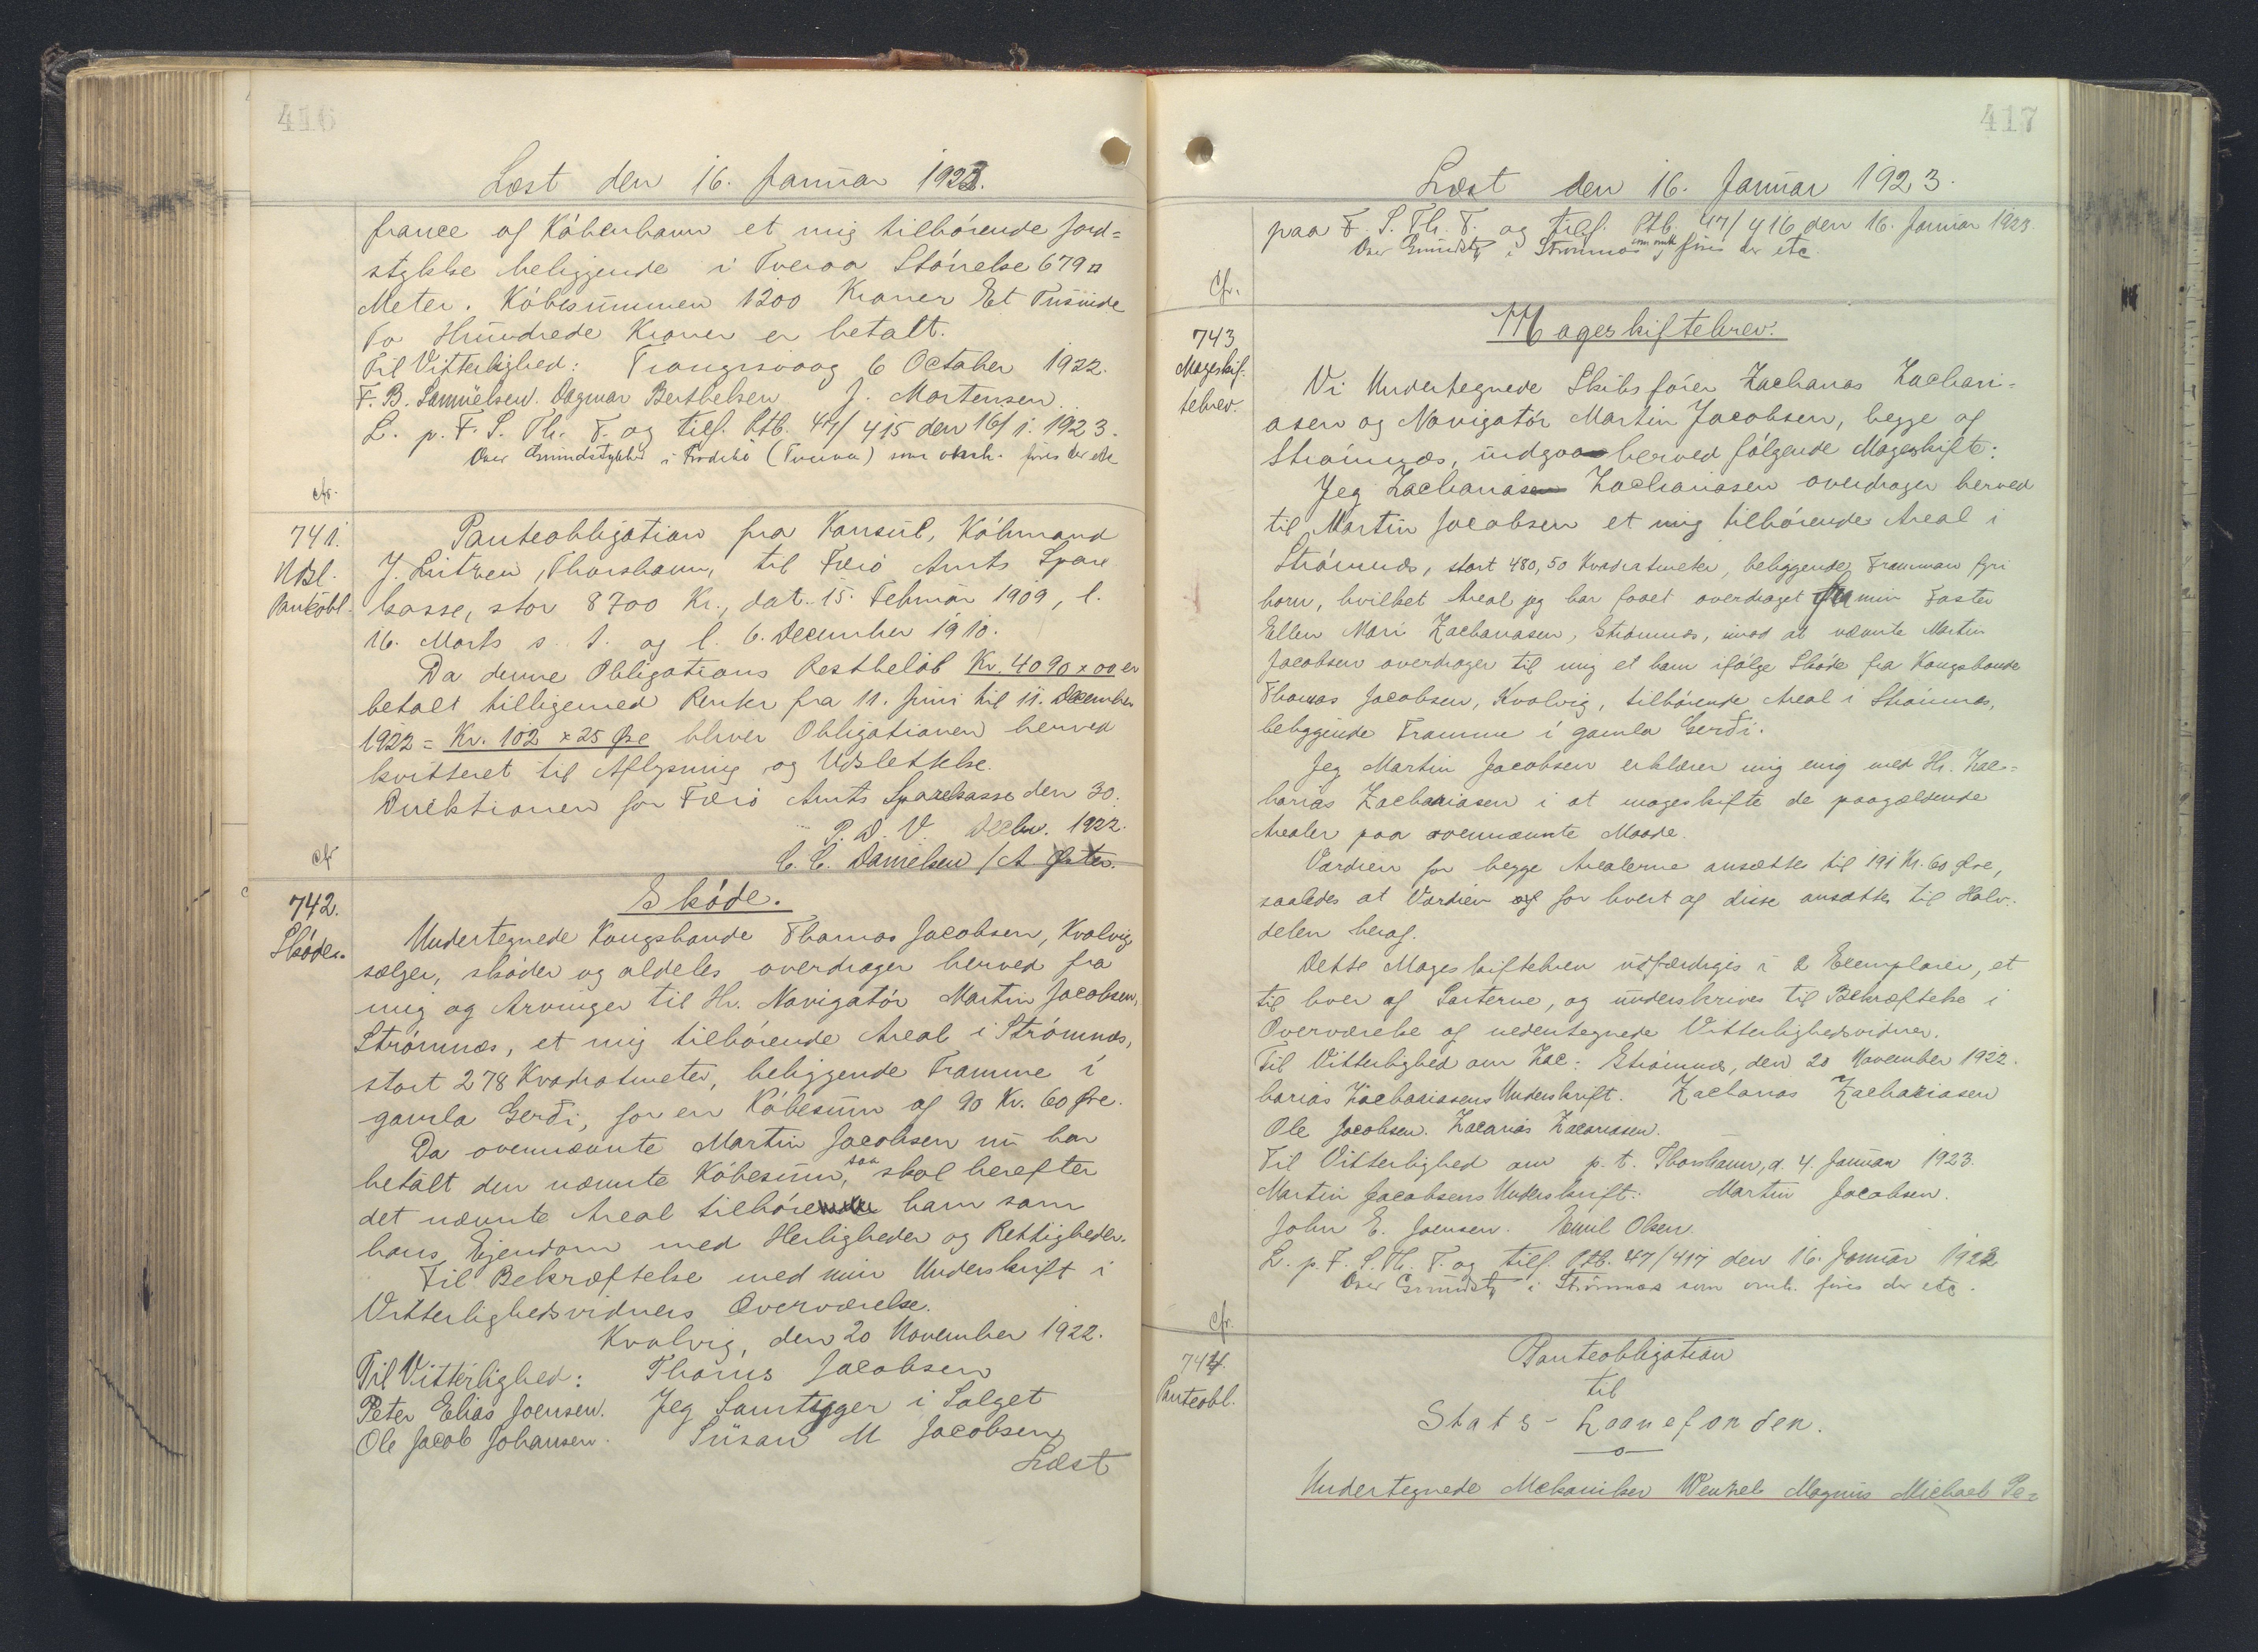 416
Læst den 16. Januar 1923.
france af København et mig tilhørende Jord=
stykke beliggende i Tveraa Størrelse 679 □
Meter. Købesummen 1200 Kroner Et Tusinde
To Hundrede Kroner er betalt.
Til Vitterlighed: Trangisvaag 6 October 1922.
F. B. Samuelsen. Dagmar Berthelsen J. Mortensen.
L. p. F. S. Th. T. og tilf. Ptb. 47/415 den 16/1. 1923.
Over Grundstykker i Froðebø (Tveraa) som omh. føres der etc
cfr.
741.
Udsl.
Panteobl.
Panteobligation fra Konsul, Købmand
J. Lützen, Thorshavn, til Færø Amts Spare
kasse, stor 8700 Kr., dat. 15. Februar 1909, l.
16. Marts s. A. og l. 6. December 1910.
Da denne Obligations Restbeløb Kr. 4090 x 00 er
betalt tilligemed Renter fra 11. Juni til 11. December
1922 = Kr. 102 x 25 Øre bliver Obligationen herved
kvitteret til Aflysning og Udslettelse.
Direktionen for Færø Amts Sparekasse den 30.
P. D. V. Decbr. 1922.
C. C. Danielsen / A Øster.
cfr
742.
Skøde.
Skøde.
Undertegnede Kongsbonde Thomas Jacobsen, Kvalvig
sælger, skøder og aldeles overdrager herved fra
mig og Arvinger til Hr. Navigatør Martin Jacobsen,
Strømnæs, et mig tilhørende Areal i Strømnæs,
stort 278 Kvadratmeter, beliggende Framme í
gamla Gerði, for en Købesum af 90 Kr. 60 Øre.
Da ovennævnte Martin Jacobsen nu har
betalt den nævnte Købesum, saa skal herefter
det nævnte Areal tilhøre ham som
hans Ejendom med Herligheder og Rettigheder.
Til Bekræftelse med min Underskrift i
Vitterlighedsvidners Overværelse.
Kvalvig, den 20 November 1922.
Til Vitterlighed: Thomas Jacobsen
Peter Elias Joensen. Jeg Samtygger i Salget
Ole Jacob Johansen. Susan M Jacobsen
Læst
417
Læst den 16. Januar 1923.
paa F. S. Th. T. og tilf. Ptb. 47/416 den 16. Januar 1923.
Over Grundstk i Strømnæs som omh føres der etc
Cfr.
743
Mageskif-
tebrev.
Mageskiftebrev.
Vi Undertegnede Skibsfører Zacharias Zachari=
asen og Navigatør Martin Jacobsen, begge af
Strømnæs, indgaa herved følgende Mageskifte:
Jeg Zacharias Zachariasen overdrager herved
til Martin Jacobsen et mig tilhørende Areal i
Strømnæs, stort 480,50 Kvadratmeter, beliggende Framman fyri
horn, hvilket Areal jeg har faaet overdraget fra min Faster
Ellen Mari Zachariasen, Strømnæs, imod at nævnte Martin
Jacobsen overdrager til mig et ham ifølge Skøde fra Kongsbonde
Thomas Jacobsen, Kvalvig, tilhørende Areal i Strømnæs,
beliggende Framme í gamla Gerði.
Jeg Martin Jacobsen erklærer mig enig med Hr. Zac=
harias Zachariasen i at mageskifte de paagældende
Arealer paa ovennævnte Maade.
Værdien for begge Arealerne ansættes til 191 Kr. 60 Øre,
saaledes at Værdien for hvert af disse ansættes til Halv-
delen heraf.
Dette Mageskiftebrev udfærdiges i 2 Exemplarer, et
til hver af Parterne, og underskrives til Bekræftelse i
Overværelse af nedentegnede Vitterlighedsvidner.
Til Vitterlighed om Zac: Strømnæs, den 20 November 1922.
harias Zachariasens Underskrift. Zacharias Zachariasen
Ole Jacobsen. Zacarias Zacariasen.
Til Vitterlighed om p. t. Thorshavn, d. 4. Januar 1923.
Martin Jacobsens Underskrift: Martin Jacobsen.
John E. Joensen. Emil Olsen.
L. p. F. S. Th. T. og tilf. Ptb. 47/417 den 16. Januar 1923
Over Grundstk i Strømnæs som omh. føres der etc.
Cfr.
744.
Panteobl.
Panteobligation
til
Stats-Laanefonden.
Undertegnede Mekaniker Wenzel Magnus Michael Pe=